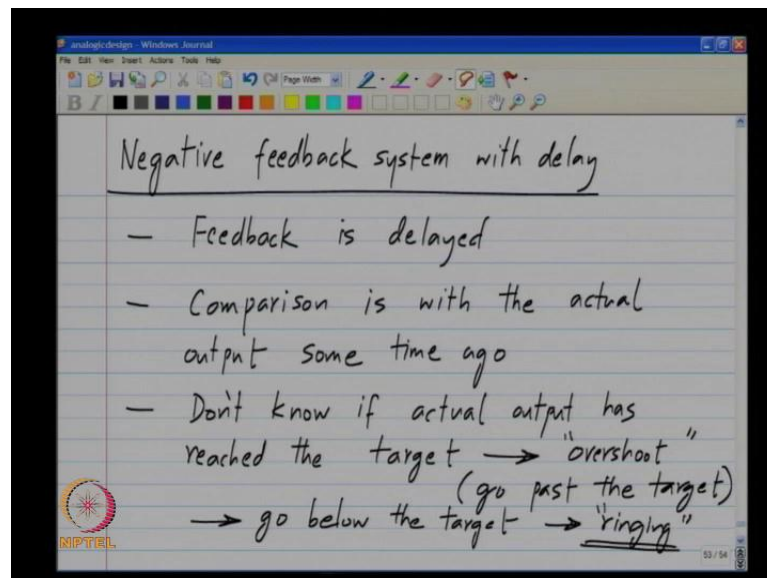 analogicdesign - Windows Journal
File Edit View Insert Actions Tools Help
Page Width
B I
Negative feedback system with delay
— Feedback is delayed
— Comparison is with the actual
output some time ago
— Don't know if actual output has
reached the target → "overshoot"
(go past the target)
→ go below the target → "ringing"
NPTEL
53 / 54